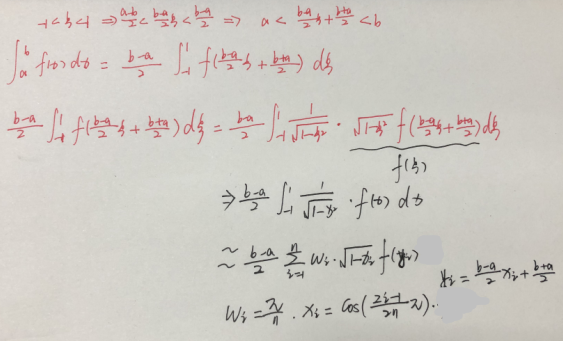 -1 < ξ < 1 ⇒ (a-b)/2 < (b-a)/2 ξ < (b-a)/2 ⇒ a < (b-a)/2 ξ + (b+a)/2 < b
∫_a^b f(x) dx = (b-a)/2 ∫_{-1}^1 f((b-a)/2 ξ + (b+a)/2) dξ
(b-a)/2 ∫_{-1}^1 f((b-a)/2 ξ + (b+a)/2) dξ = (b-a)/2 ∫_{-1}^1 1/√(1-ξ²) · √(1-ξ²) f((b-a)/2 ξ + (b+a)/2) dξ
f(ξ)
⇒ (b-a)/2 ∫_{-1}^1 1/√(1-x²) · f(x) dx
≈ (b-a)/2 Σ_{i=1}^n w_i · √(1-x_i²) f(y_i)
y_i = (b-a)/2 x_i + (b+a)/2
w_i = π/n . x_i = cos((2i-1)/2n π).